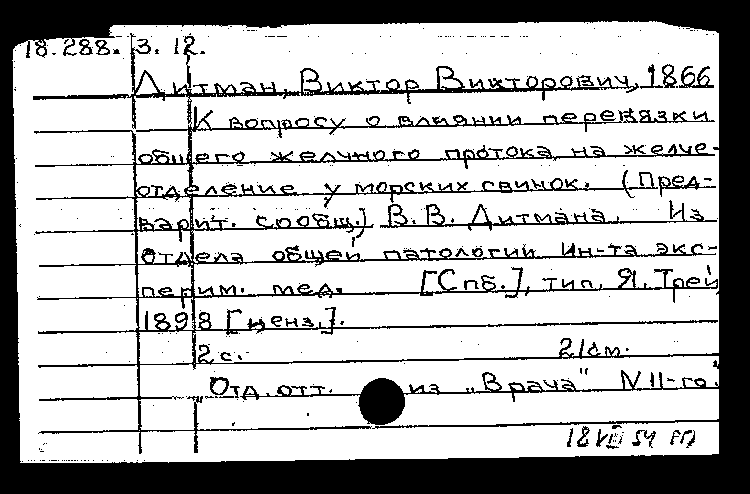 18.288. 3. 12.
Дитман, Виктор Викторович, 1866
К вопросу о влиянии перевязки
общего желчного протока на желче-
отделение у морских свинок. (Пред-
варит. сообщ.) В. В. Дитмана. Из
отдела общей патологии Ин-та экс-
перим. мед. [Спб.], тип. Я. Трей,
1898 [ценз.].
2 с. 21 см.
"Отд. отт. из „Врача" N 11-го."
18 VIII 54